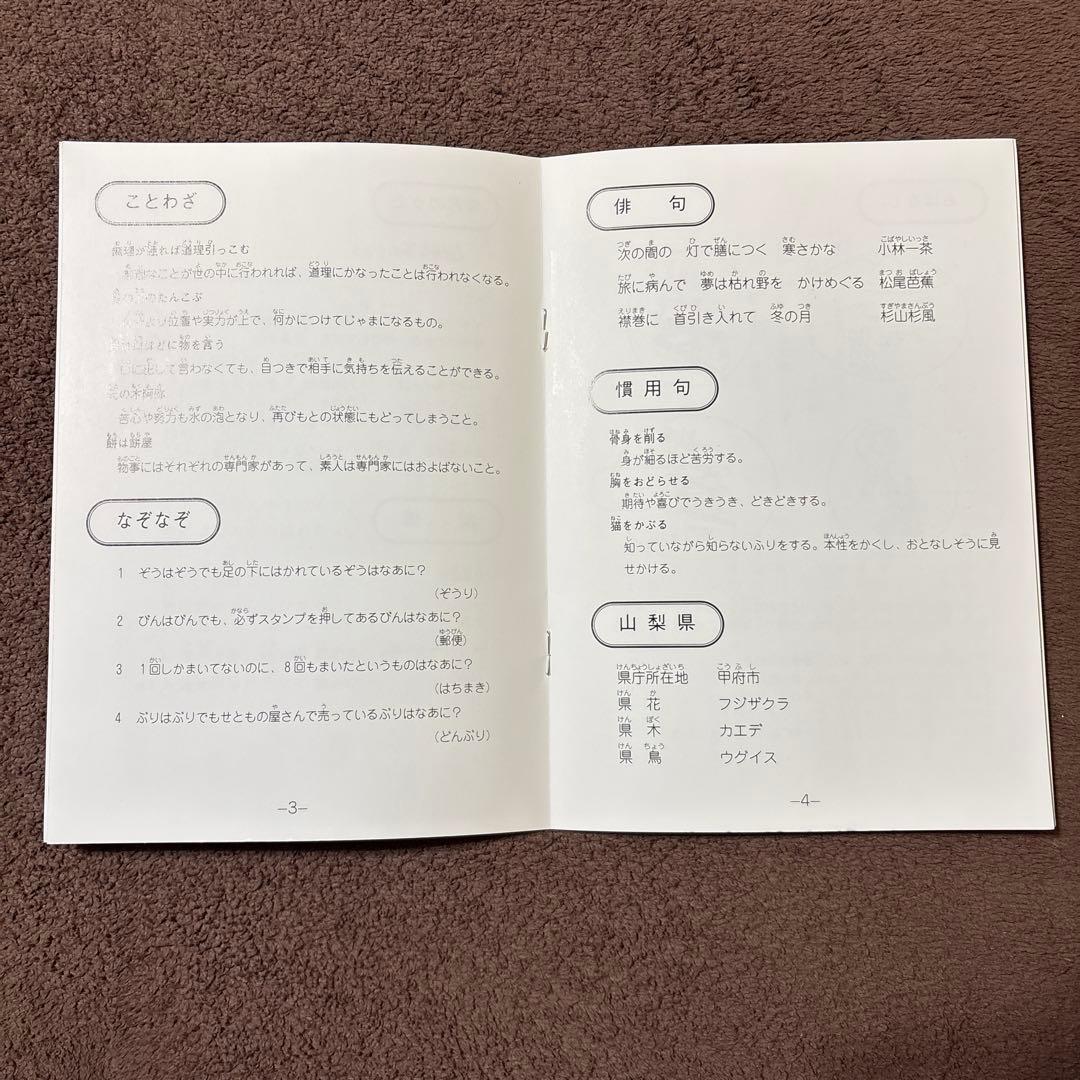 ことわざ
無理が通れば道理引っこむ
なことが世の中に行われれば、道理にかなったことは行われなくなる。
のたんこぶ
より位置や実力が上で、何かにつけてじゃまになるもの。
ほどに物を言う
に出して言わなくても、目つきで相手に気持ちを伝えることができる。
元の木阿弥
苦心や努力も水の泡となり、再びもとの状態にもどってしまうこと。
餅は餅屋
物事にはそれぞれの専門家があって、素人は専門家にはおよばないこと。
なぞなぞ
1 ぞうはぞうでも足の下にはかれているぞうはなあに?
(ぞうり)
2 びんはびんでも、必ずスタンプを押してあるびんはなあに?
(郵便)
3 1回しかまいてないのに、8回もまいたというものはなあに?
(はちまき)
4 ぶりはぶりでもせともの屋さんで売っているぶりはなあに?
(どんぶり)
—3—
俳 句
次の間の 灯で膳につく 寒さかな 小林一茶
旅に病んで 夢は枯れ野を かけめぐる 松尾芭蕉
襟巻に 首引き入れて 冬の月 杉山杉風
慣用句
骨身を削る
身が細るほど苦労する。
胸をおどらせる
期待や喜びでうきうき、どきどきする。
猫をかぶる
知っていながら知らないふりをする。本性をかくし、おとなしそうに見
せかける。
山梨県
県庁所在地 甲府市
県 花 フジザクラ
県 木 カエデ
県 鳥 ウグイス
—4—